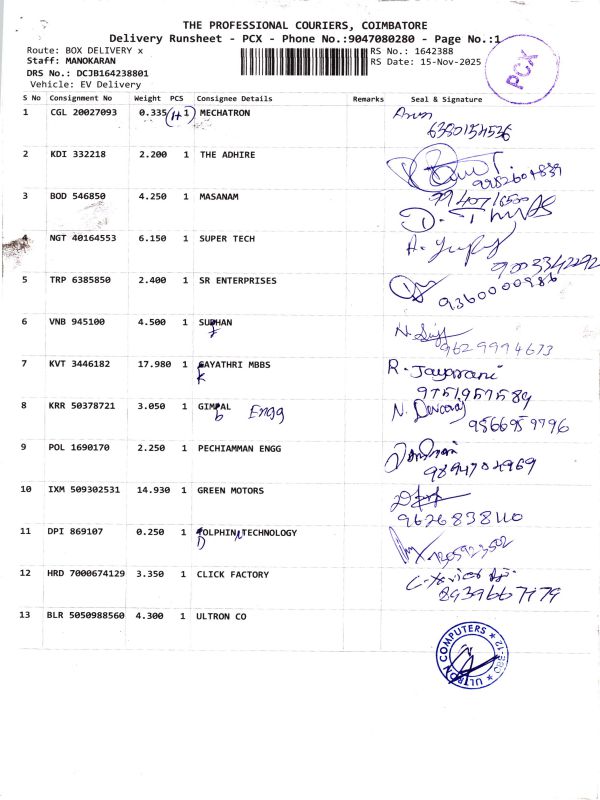 THE PROFESSIONAL COURIERS, COIMBATORE
Delivery Runsheet - PCX - Phone No.:9047080280 - Page No.:1
Route: BOX DELIVERY x RS No.: 1642388
Staff: MANOKARAN RS Date: 15-Nov-2025
DRS No.: DCJB164238801
Vehicle: EV Delivery
PCX
S No Consignment No Weight PCS Consignee Details Remarks Seal & Signature
1 CGL 20027093 0.335 (H 1) MECHATRON Arun
6380154526
2 KDI 332218 2.200 1 THE ADHIRE
3 BOD 546850 4.250 1 MASANAM
4 NGT 40164553 6.150 1 SUPER TECH
9003342292
5 TRP 6385850 2.400 1 SR ENTERPRISES
9360000986
6 VNB 945100 4.500 1 SUPHAN
9629994673
7 KVT 3446182 17.980 1 GAYATHRI MBBS R. Jayarani
K 9751957589
8 KRR 50378721 3.050 1 GIMPAL Engg N. Devaraj
b 9566959796
9 POL 1690170 2.250 1 PECHIAMMAN ENGG
9894702969
10 IXM 509302531 14.930 1 GREEN MOTORS
9626838110
11 DPI 869107 0.250 1 OLPHIN TECHNOLOGY
D
12 HRD 7000674129 3.350 1 CLICK FACTORY
8939667179
13 BLR 5050988560 4.300 1 ULTRON CO
ULTRON COMPUTERS